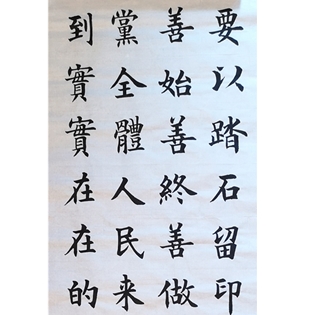 要以踏石留印
善始善終善做
黨全體人民来
到實實在在的